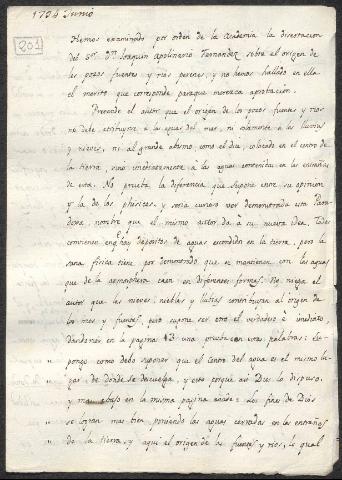 1794 Junio
201
Hemos examinado por orden de la Academia la disertacion
del Sor. Dn. Joaquin Apolinario Fernandez sobre el origen de
los pozos fuentes y rios perenes, y no hemos hallado en ella
el merito que corresponde paraque merezca aprobación.
Pretende el autor que el origen de los pozos fuentes y rios
no debe atribuirse à las aguas del mar, ni solamente à las lluvias
y nieves, ni al grande abismo como el dice, colocado en el centro de
la tierra, sino inmediatamente à las aguas contenidas en las entrañas
de esta. No prueba la diferencia que supone entre su opinion
y la de los phisicos, y seria curioso ver demonstrada esta Para-
doxa, nombre que el mismo autor da à su nueva idea. Todos
convienen en q. hay depositos de aguas escondidos en la tierra, pero la
sana fisica tiene por demonstrado que se mantienen con las aguas
que de la atmosphera caen en diferentes formas. No niega el
autor que las nieves, nieblas y lluvias contribuyan al origen de
los rios y fuentes, pero supone ser otro el verdadero è inmediato
dandonos en la pagina 43 una prueba con estas palabras: su-
pongo como debo suponer que el centro del agua es el mismo lu-
gar de donde se
desagua, y esto porque asi Dios lo dispuso,
y mas abajo en la misma pagina añade: los fines de Dios
se logran mas bien poniendo las aguas cerradas en las entrañas
de la tierra, y aqui el origen de las fuentes y rios, lo qual